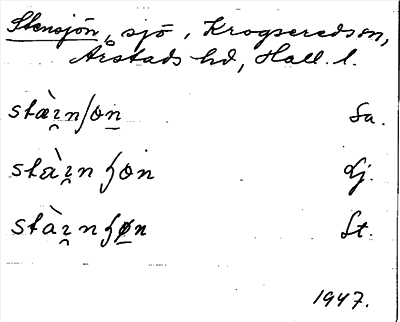 Stensjön, sjö, Krogsereds sn,
Årstads hd, Hall. l.
stàɪ̯nʃon̲ Sa.
stàɪ̯nʃɷn Lj.
stàɪ̯nʃøn St.
1947.